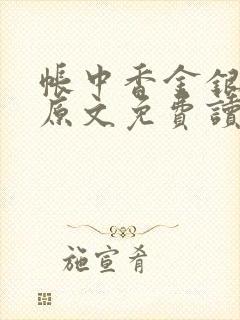 帳中香金銀
原文免費讀
施宣肴